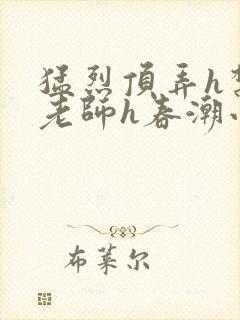 猛烈頂弄h
老師h春潮
布莱尔